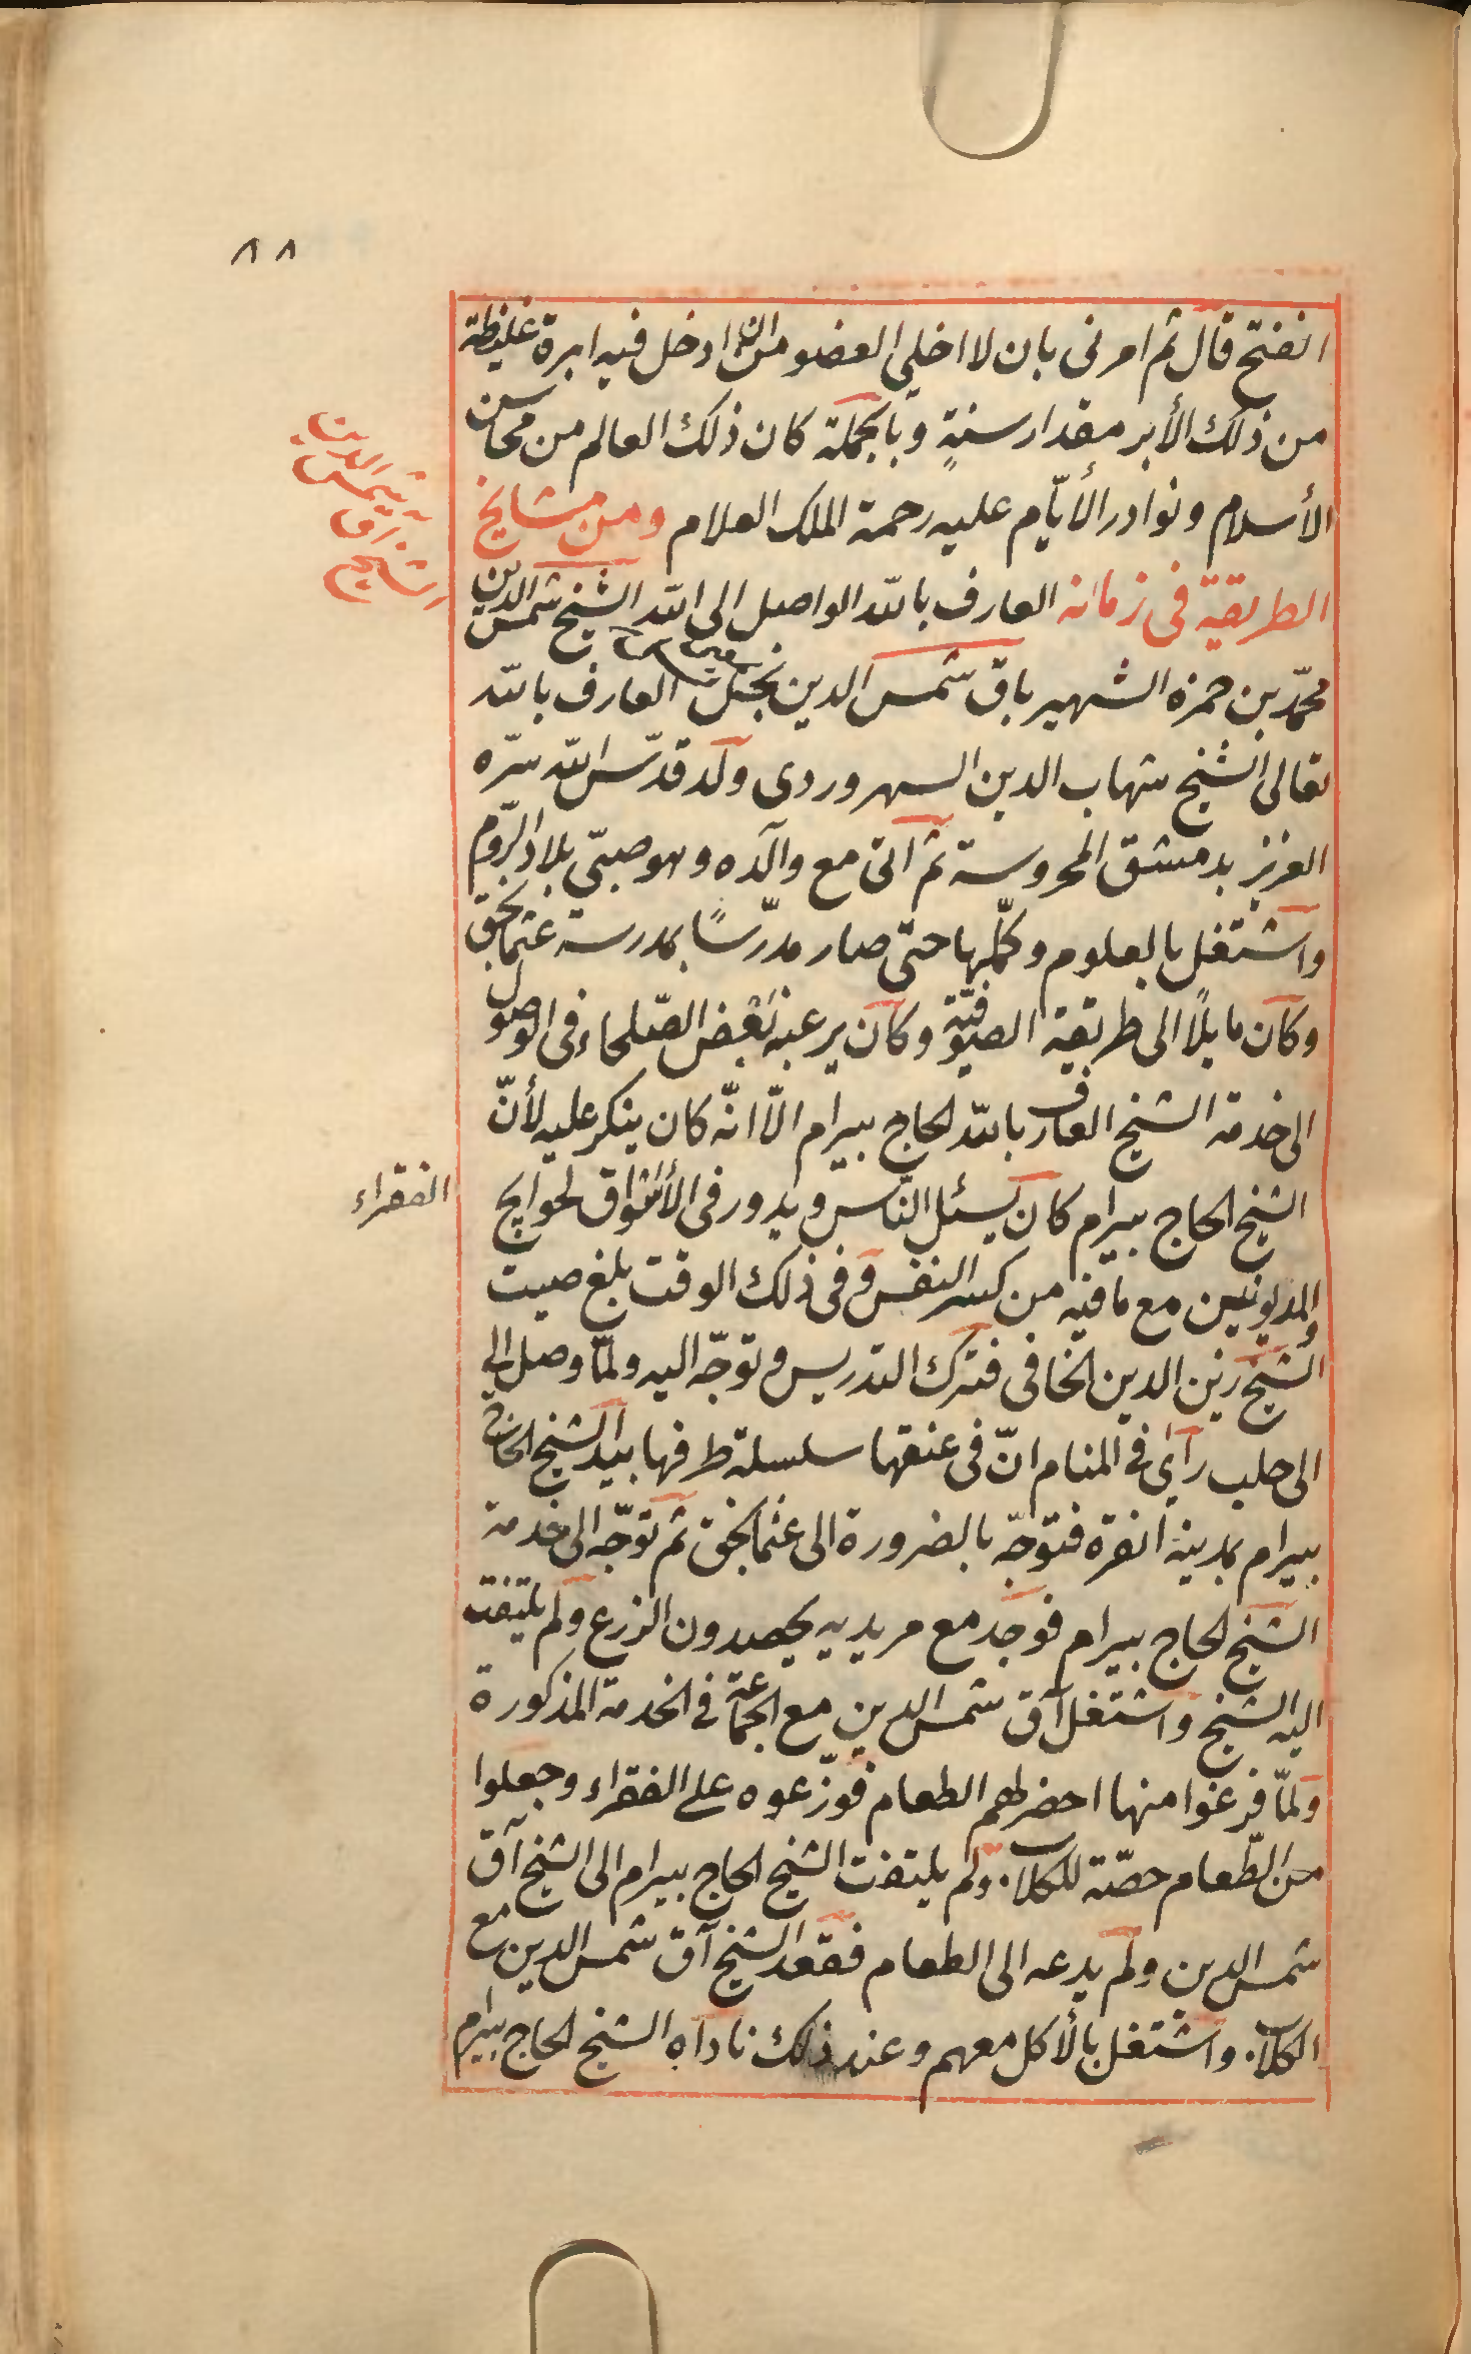 ٨٨
انفتح قال ثم امرنى بان لا اخلي العضو من ادخل فيه ابرة غليظة
من ذلك الأبر مقدار سنةٍ وبالجملة كان ذلك العالم من محاسن
الأسلام ونوادر الأيّام عليه رحمة الملك العلام ومن مشايخ
الطريقية فى زمانه العارف بالله الواصل الى الله الشيخ شمس الدين
محمّد بن حمزه الشهير باق شمس الدين نجل العارف بالله
تعالى الشيخ شهاب الدين السهروردى ولد قدّس الله سرّه
العزيز بدمشق المحروسة ثم اتى مع والده وهو صبىّ بلاد الروم
واشتغل بالعلوم وكمّلها حتى صار مدرّسًا بمدرسة عثمانجق
وكان مايلًا الى طريقة الصوفيّة وكان يرغبه بعض الصّلحاء فى الوصول
الى خدمة الشيخ العارف بالله الحاج بيرام الّا انّه كان ينكر عليه لأنّ
الشيخ الحاج بيرام كان يسئل النّاس ويدور فى الأسواق لحوايج
والمديونين مع ما فيه من كسر النفس وفى ذلك الوقت بلغ صيت
الشيخ زين الدين الخافى فترك التدريس وتوجّه اليه ولمّا وصل الى
الى حلب رأى فى المنام انّ فى عنقها سلسلة طرفها بيد الشيخ الحاج
بيرام بمدينة انقرة فتوجّه بالضرورة الى عثمانجق ثم توجّه الى خدمة
الشيخ الحاج بيرام فوجد مع مريديه يحصدون الزرع ولم يلتفت
اليه الشيخ واشتغل آق شمس الدين مع الجماعة فى الخدمة المذكورة
ولمّا فرغوا منها احضر لهم الطعام فوزّعوه على الفقراء وجعلوا
من الطّعام حصّة للكلاب ولم يلتفت الشيخ الحاج بيرام الى الشيخ آق
شمس الدين ولم يدعه الى الطعام فقعد الشيخ آق شمس الدين مع
الكلاب واشتغل بالأكل معهم وعند ذلك ناداه الشيخ الحاج بيرام
الشيخ آق
شمس الدين
الفقراء